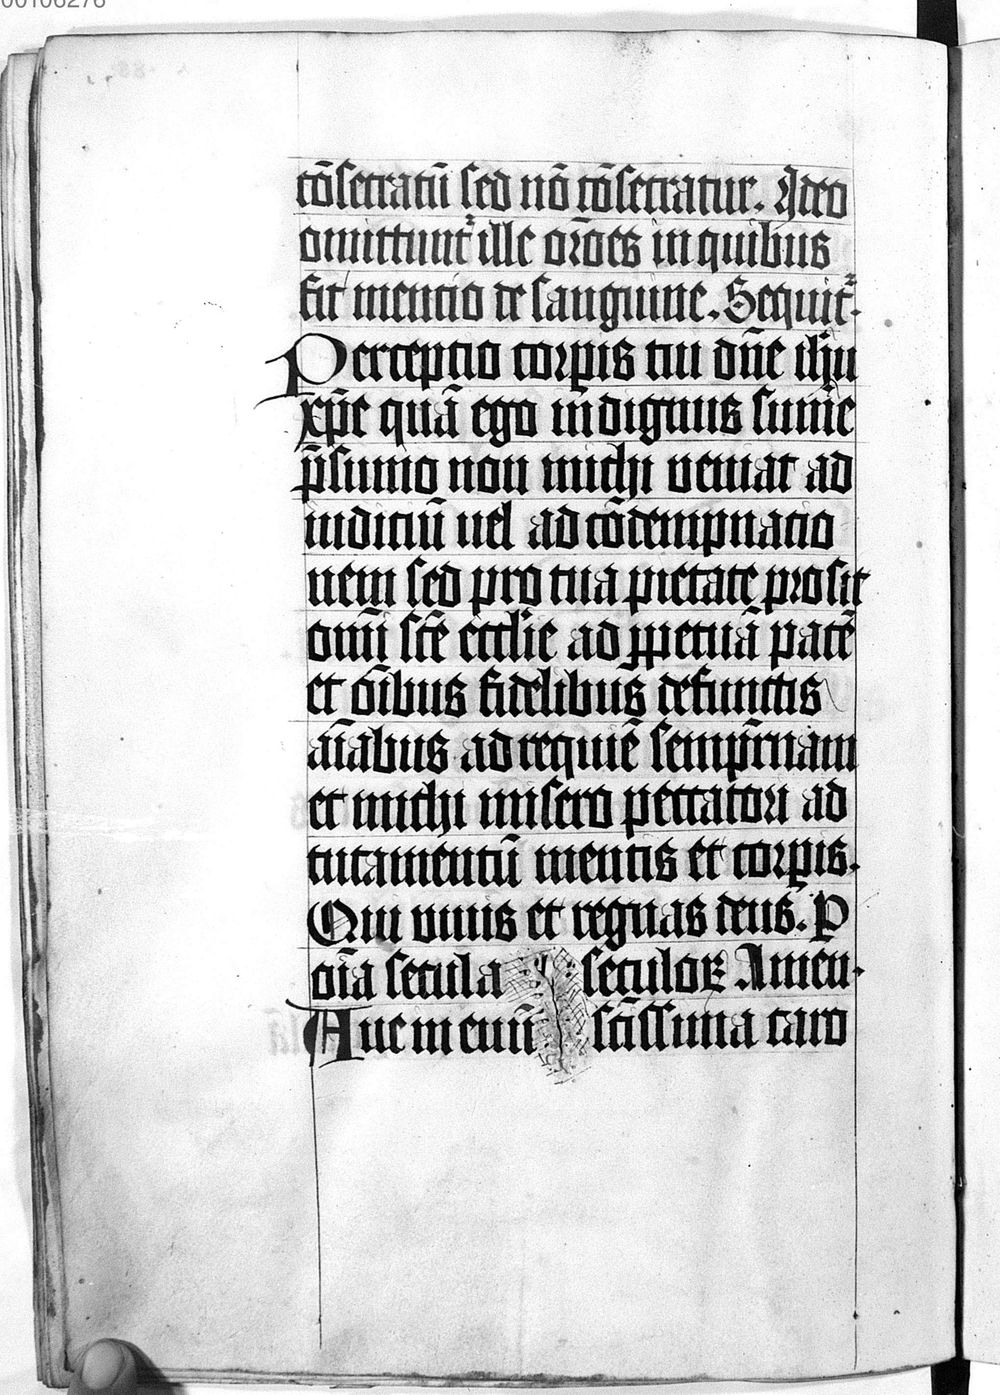 00106276
cōsecratū sed nō cōsecratur. Ideo
omittunt᷑ ille or̄oēs in quibus
fit mentio de sanguine. Sequit᷑.
Perceptio corꝑis tui dn̄e ih̄u
xp̄e quā ego indignus sum̄e
p̄sumo non michi veniat ad
iudiciū uel ad cōdempnatio
nem sed pro tua pietate prosit
om̄i scē eccl̄ie ad ꝑpetuā pacē
et oībus fidelibus defunctis
aīabus ad requiē semp̄rnam
et michi misero peccatori ad
tutamentū mentis et corꝑis.
Qui viuis et regnas deus. P
oīa secula seculoꝝ Amen.
Aue in euū scīssima caro